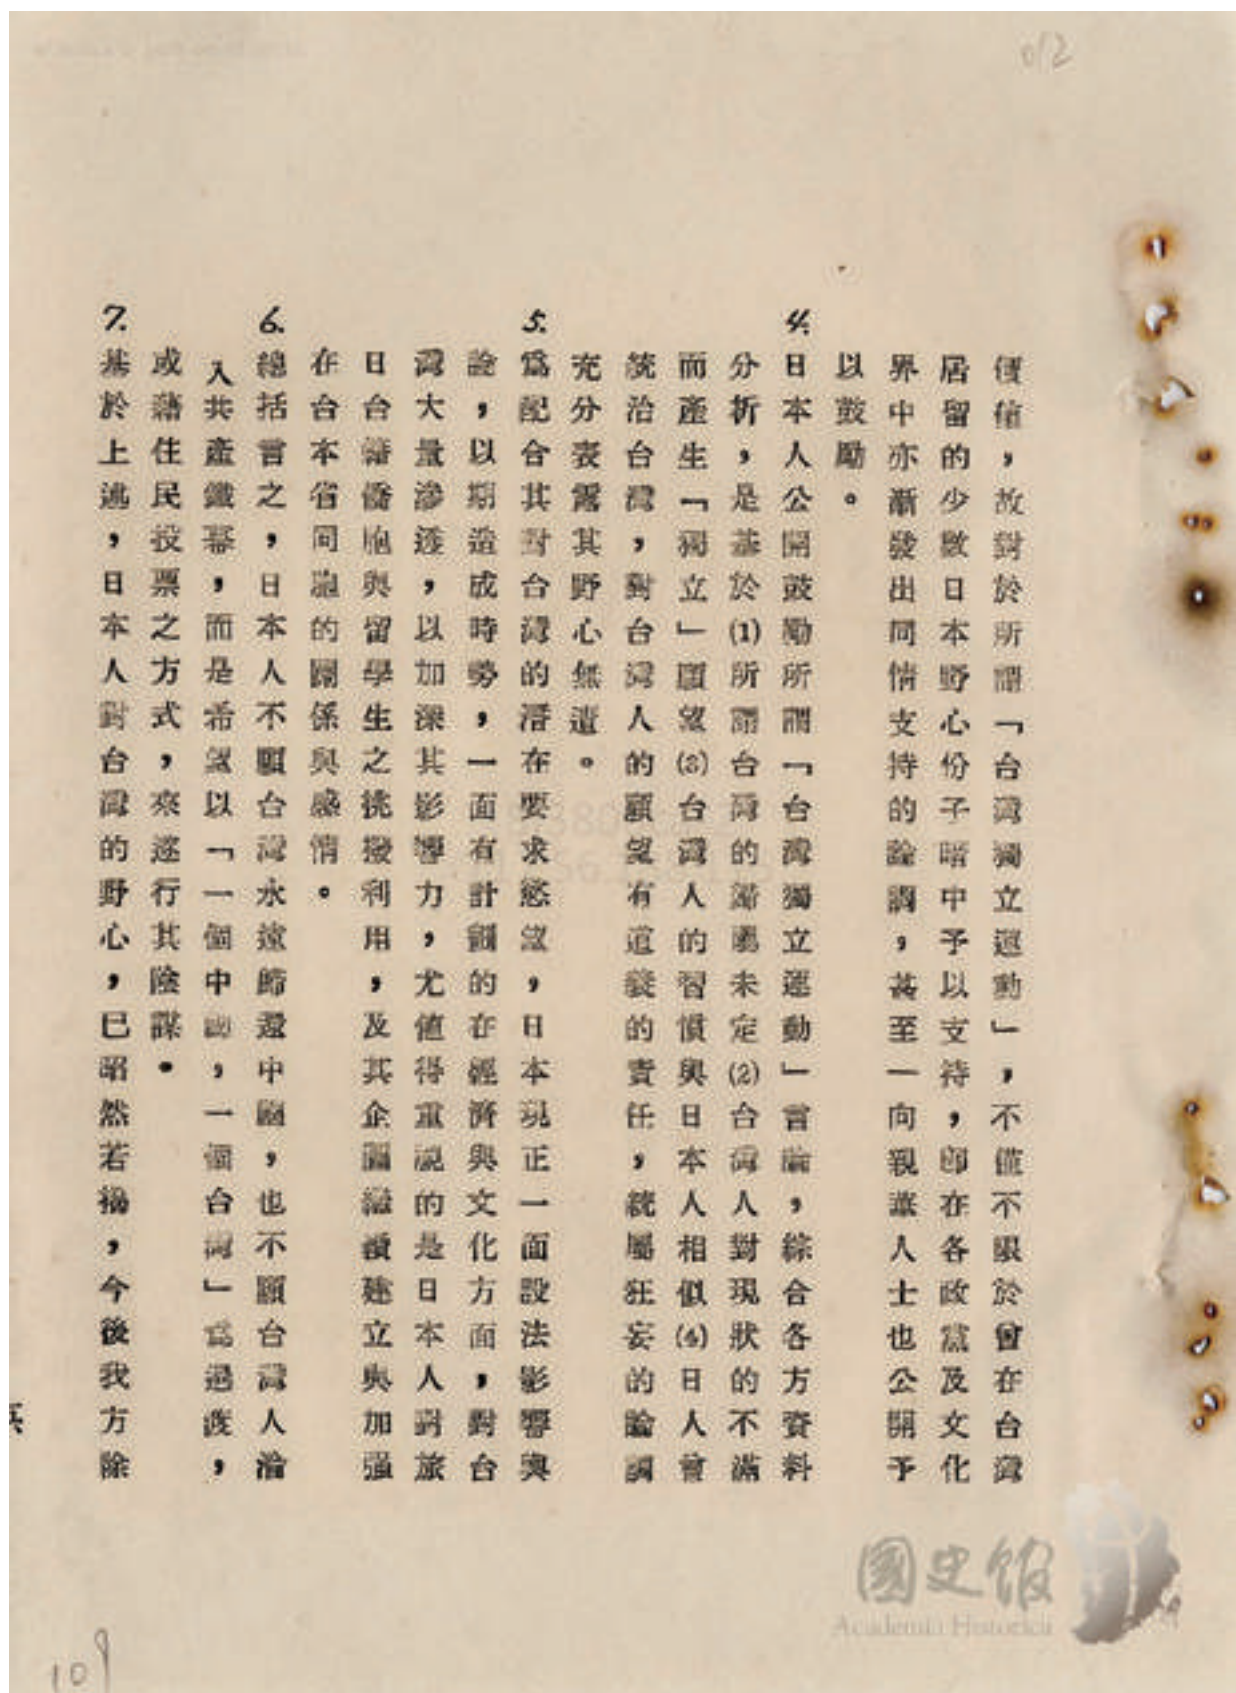 012
價值，故對於所謂「台灣獨立運動」，不僅不限於曾在台灣
居留的少數日本野心份子暗中予以支持，即在各政黨及文化
界中亦漸發出同情支持的論調，甚至一向親華人士也公開予
以鼓勵。
4.日本人公開鼓勵所謂「台灣獨立運動」言論，綜合各方資料
分析，是基於(1)所謂台灣的歸屬未定(2)台灣人對現狀的不滿
而產生「獨立」願望(3)台灣人的習慣與日本人相似(4)日人曾
統治台灣，對台灣人的願望有道義的責任，統屬狂妄的論調
充分表露其野心無遺。
5.為配合其對台灣的潛在要求慾望，日本現正一面設法影響輿
論，以期造成時勢，一面有計劃的在經濟與文化方面，對台
灣大量滲透，以加深其影響力，尤值得重視的是日本人對旅
日台籍僑胞與留學生之挑撥利用，及其企圖繼續建立與加強
在台本省同胞的關係與感情。
6.總括言之，日本人不願台灣永遠歸還中國，也不願台灣人淪
入共產鐵幕，而是希望以「一個中國，一個台灣」為過渡，
或藉住民投票之方式，來遂行其陰謀。
7.基於上述，日本人對台灣的野心，已昭然若揭，今後我方除
國史館
Academia Historica
10